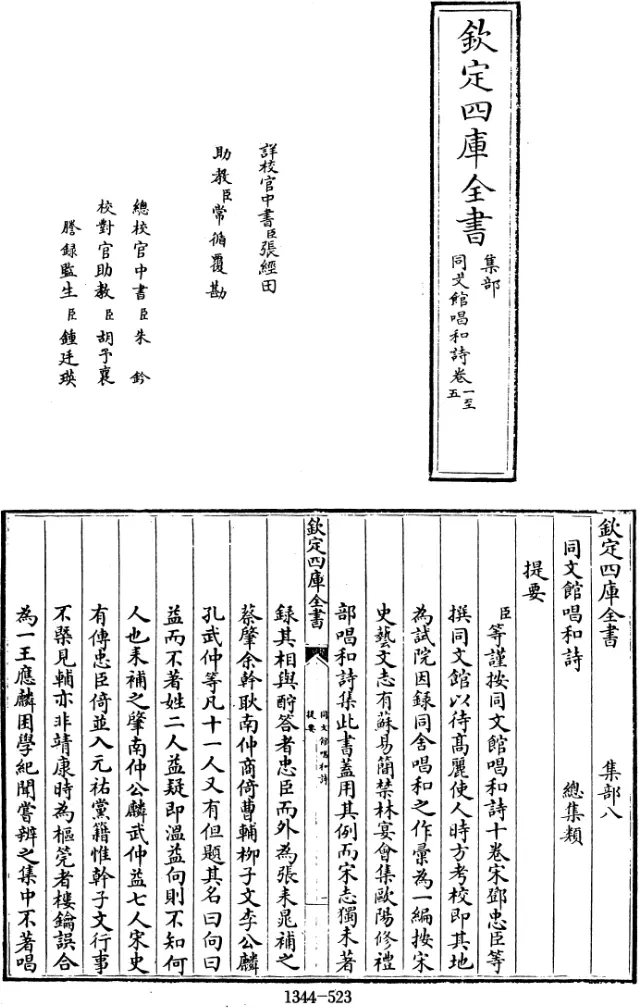 欽定四庫全書
集部
同文館唱和詩卷一至五
詳校官中書臣張經田
助教臣常循覆勘
總校官中書臣朱鈐
校對官助教臣胡予襄
謄錄監生臣鍾廷瑛
欽定四庫全書
集部八
同文館唱和詩
總集類
提要
臣等謹按同文館唱和詩十卷宋鄧忠臣等
撰同文館以待髙麗使人時方考校即其地
為試院因錄同舍唱和之作彚為一編按宋
史藝文志有蘇易簡禁林宴會集歐陽修禮
部唱和詩集此書蓋用其例而宋志獨未著
欽定四庫全書
同文館唱和詩
提要
一
錄其相與酧答者忠臣而外為張耒晁補之
蔡肇余幹耿南仲商倚曹輔栁子文李公麟
孔武仲等凡十一人又有但題其名曰向曰
益而不著姓二人益疑即溫益向則不知何
人也耒補之肇南仲公麟武仲益七人宋史
有傳忠臣倚並入元祐黨籍惟幹子文行事
不槩見輔亦非靖康時為樞筦者樓鑰誤合
為一王應麟困學紀聞嘗辨之集中不著唱
1344-523